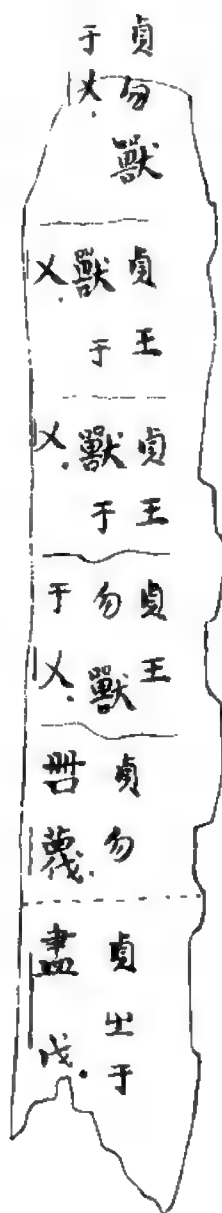 貞勿獸
于乂.
貞王
獸于
乂.
貞王
獸于
乂.
貞王
勿獸
于乂.
貞勿
薎.
貞㞢于
盡戊.